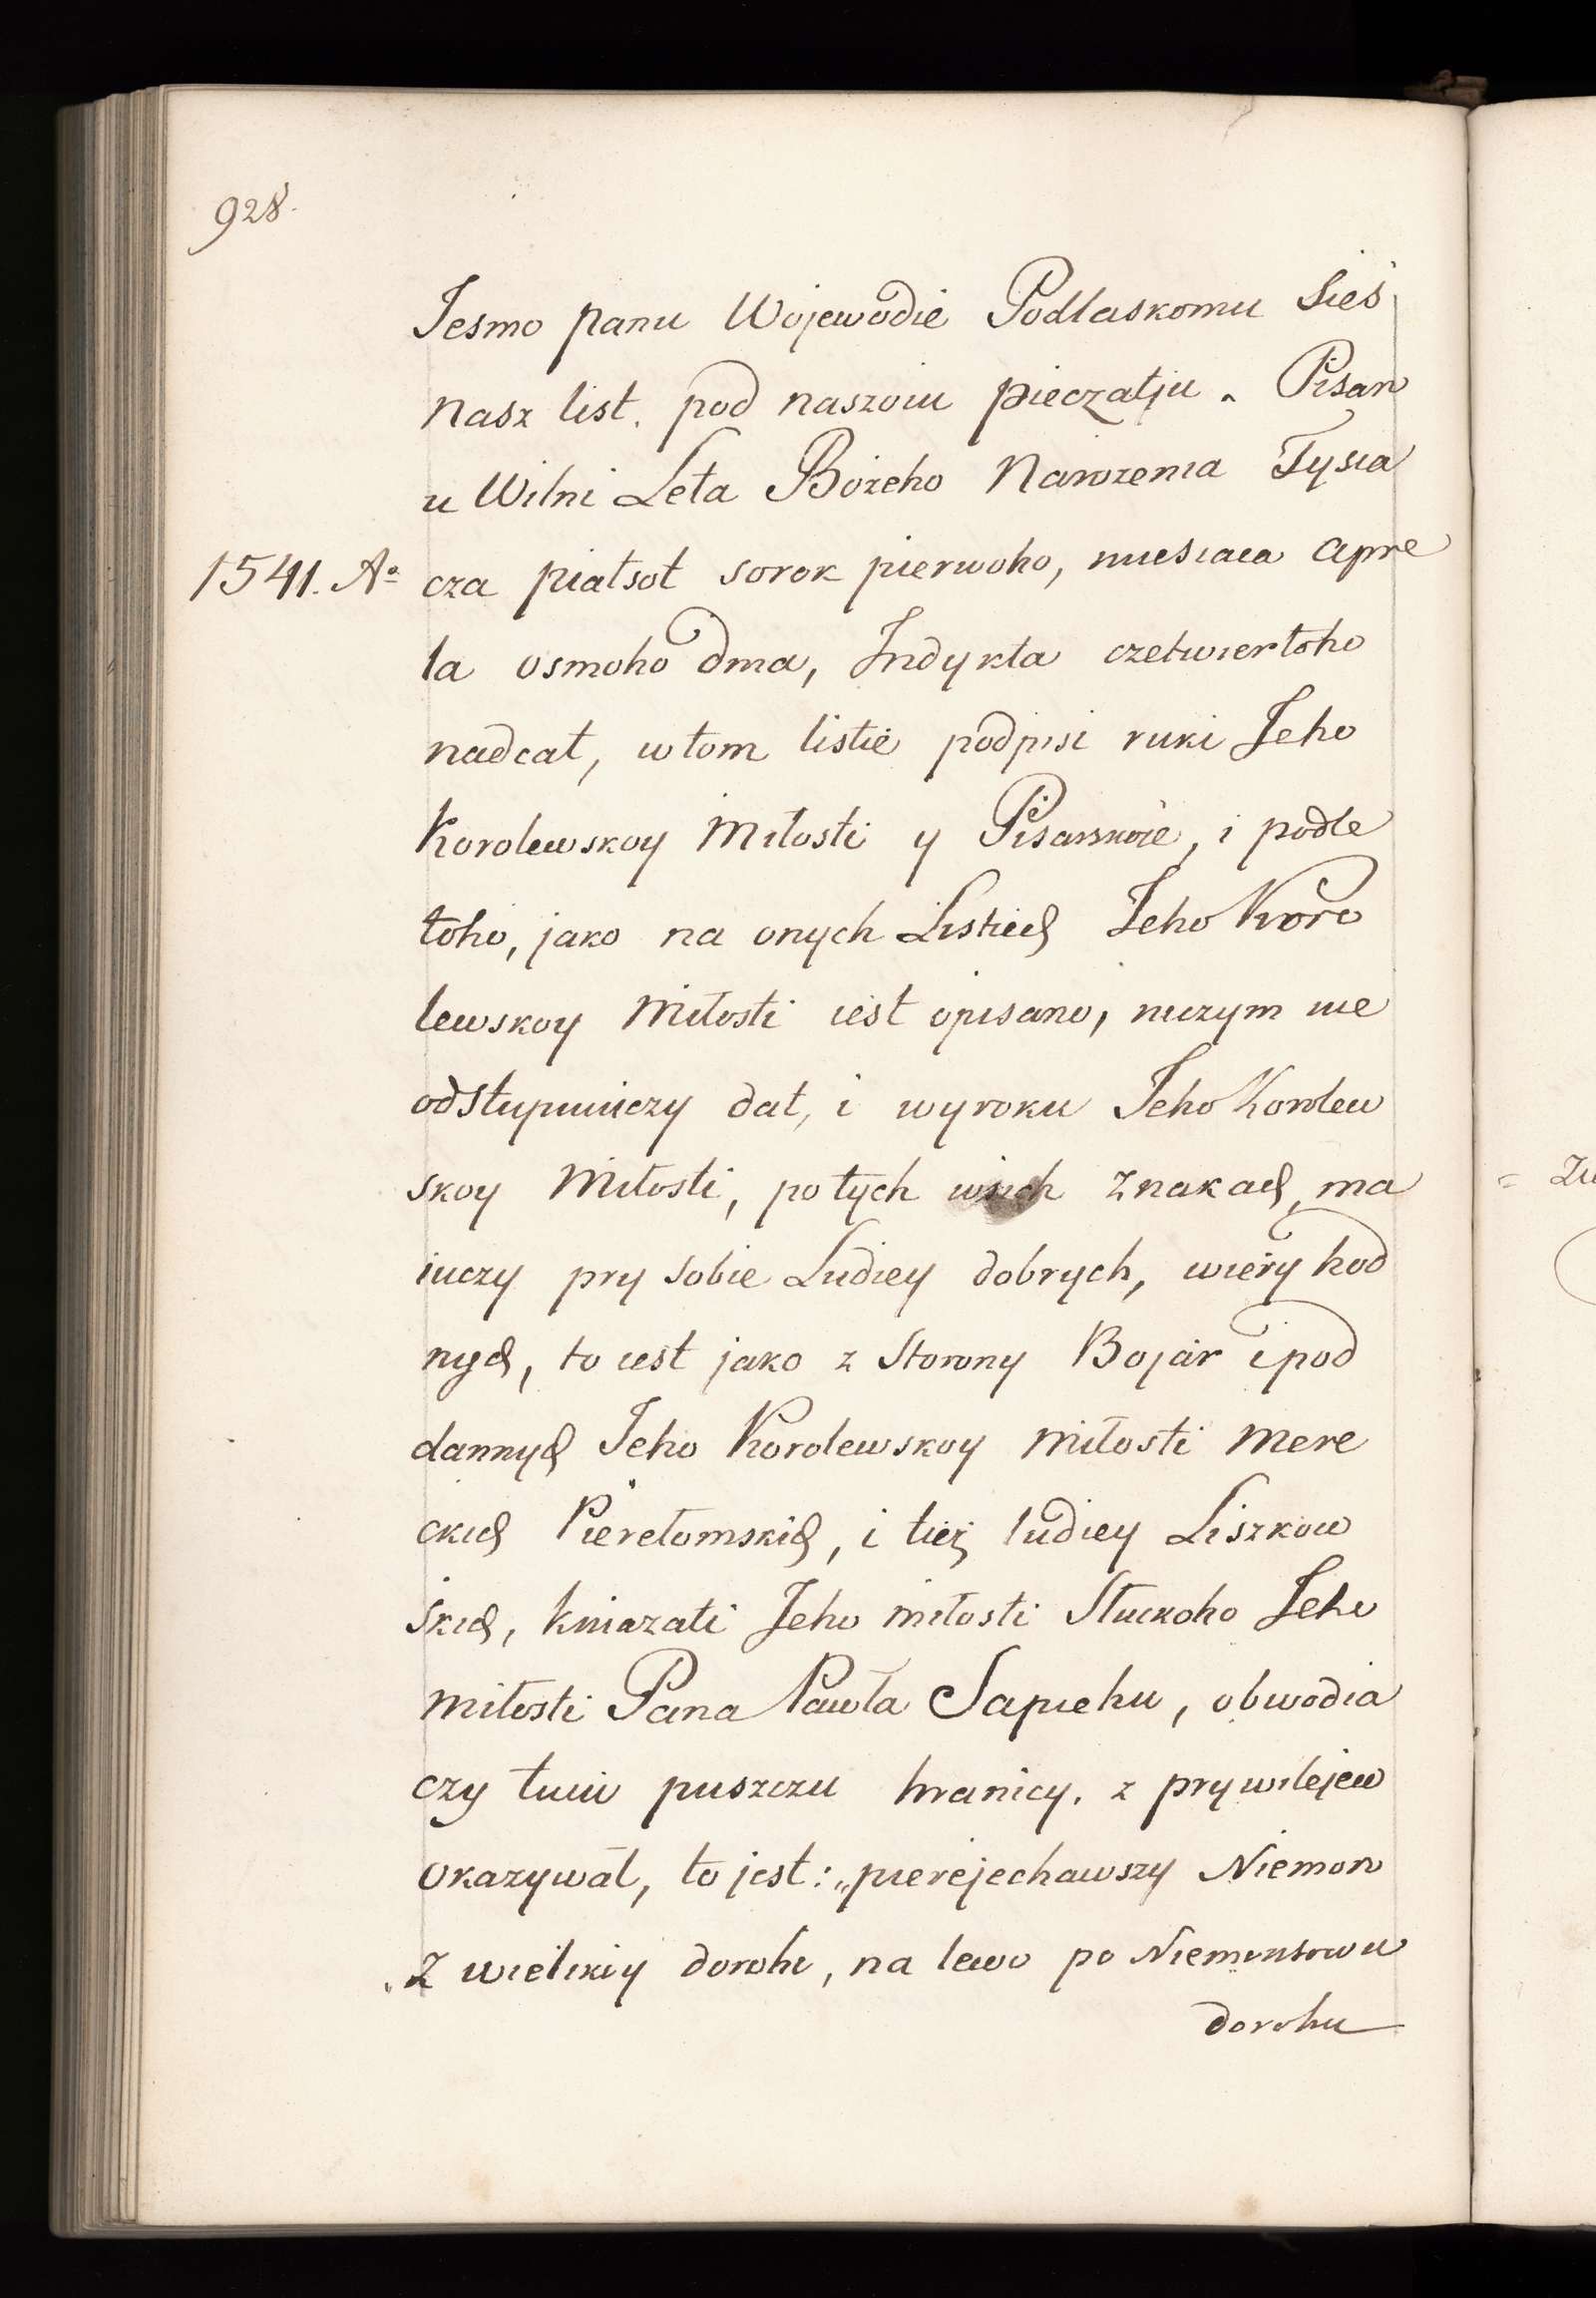 928.
Jesmo panu Wojewodie Podlaskomu Sieś
nasz list. pod naszoiu pieczatju. Pisan
u Wilni Leta Bożeho Narożenia Tysia
1541. Ao cza piatsot sorok pierwoho, miesiaca apre
la osmoho dnia, Indykta czetwiertoho
nadcat, wtom listie podpisi ruki Jeho
Korolewskoy Miłosti y Pisarskoie, i podle
toho, jako na onych Listiech Jeho Koro
lewskoy Miłosti iest opisano, niczym nie
odstupuiuczy dał, i wyroku Jeho Korolew
skoy Miłosti, po tych wsich znakach, ma
iuczy pry sobie Ludiey dobrych, wiery hod
nych, to iest jako z Storony Bojar i pod
dannych Jeho Korolewskoy miłosti Mere
ckich Pierełomskich, i tież ludiey Liszkow
skich, kniazati Jeho miłosti Słuckoho Jeho
miłosti Pana Pawła Sapiehu, obwodia
czy tuiu puszczu hranicy. z prywilejew
okazywał, to jest: „pierejechawszy Niemon
„z wielikiy dorohi, na lewo po Niemonsowu
dorohu
= Zu